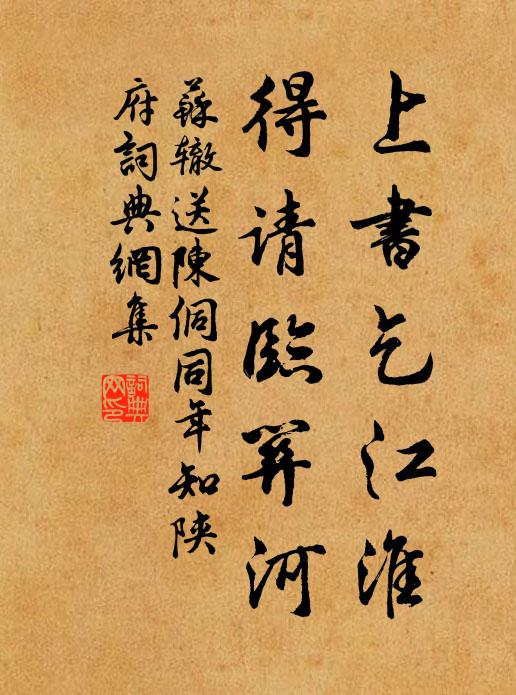 上書乞江淮
得请臨關河
蘇辙送陳侗同年知陝
府詞典網集
詞典网印